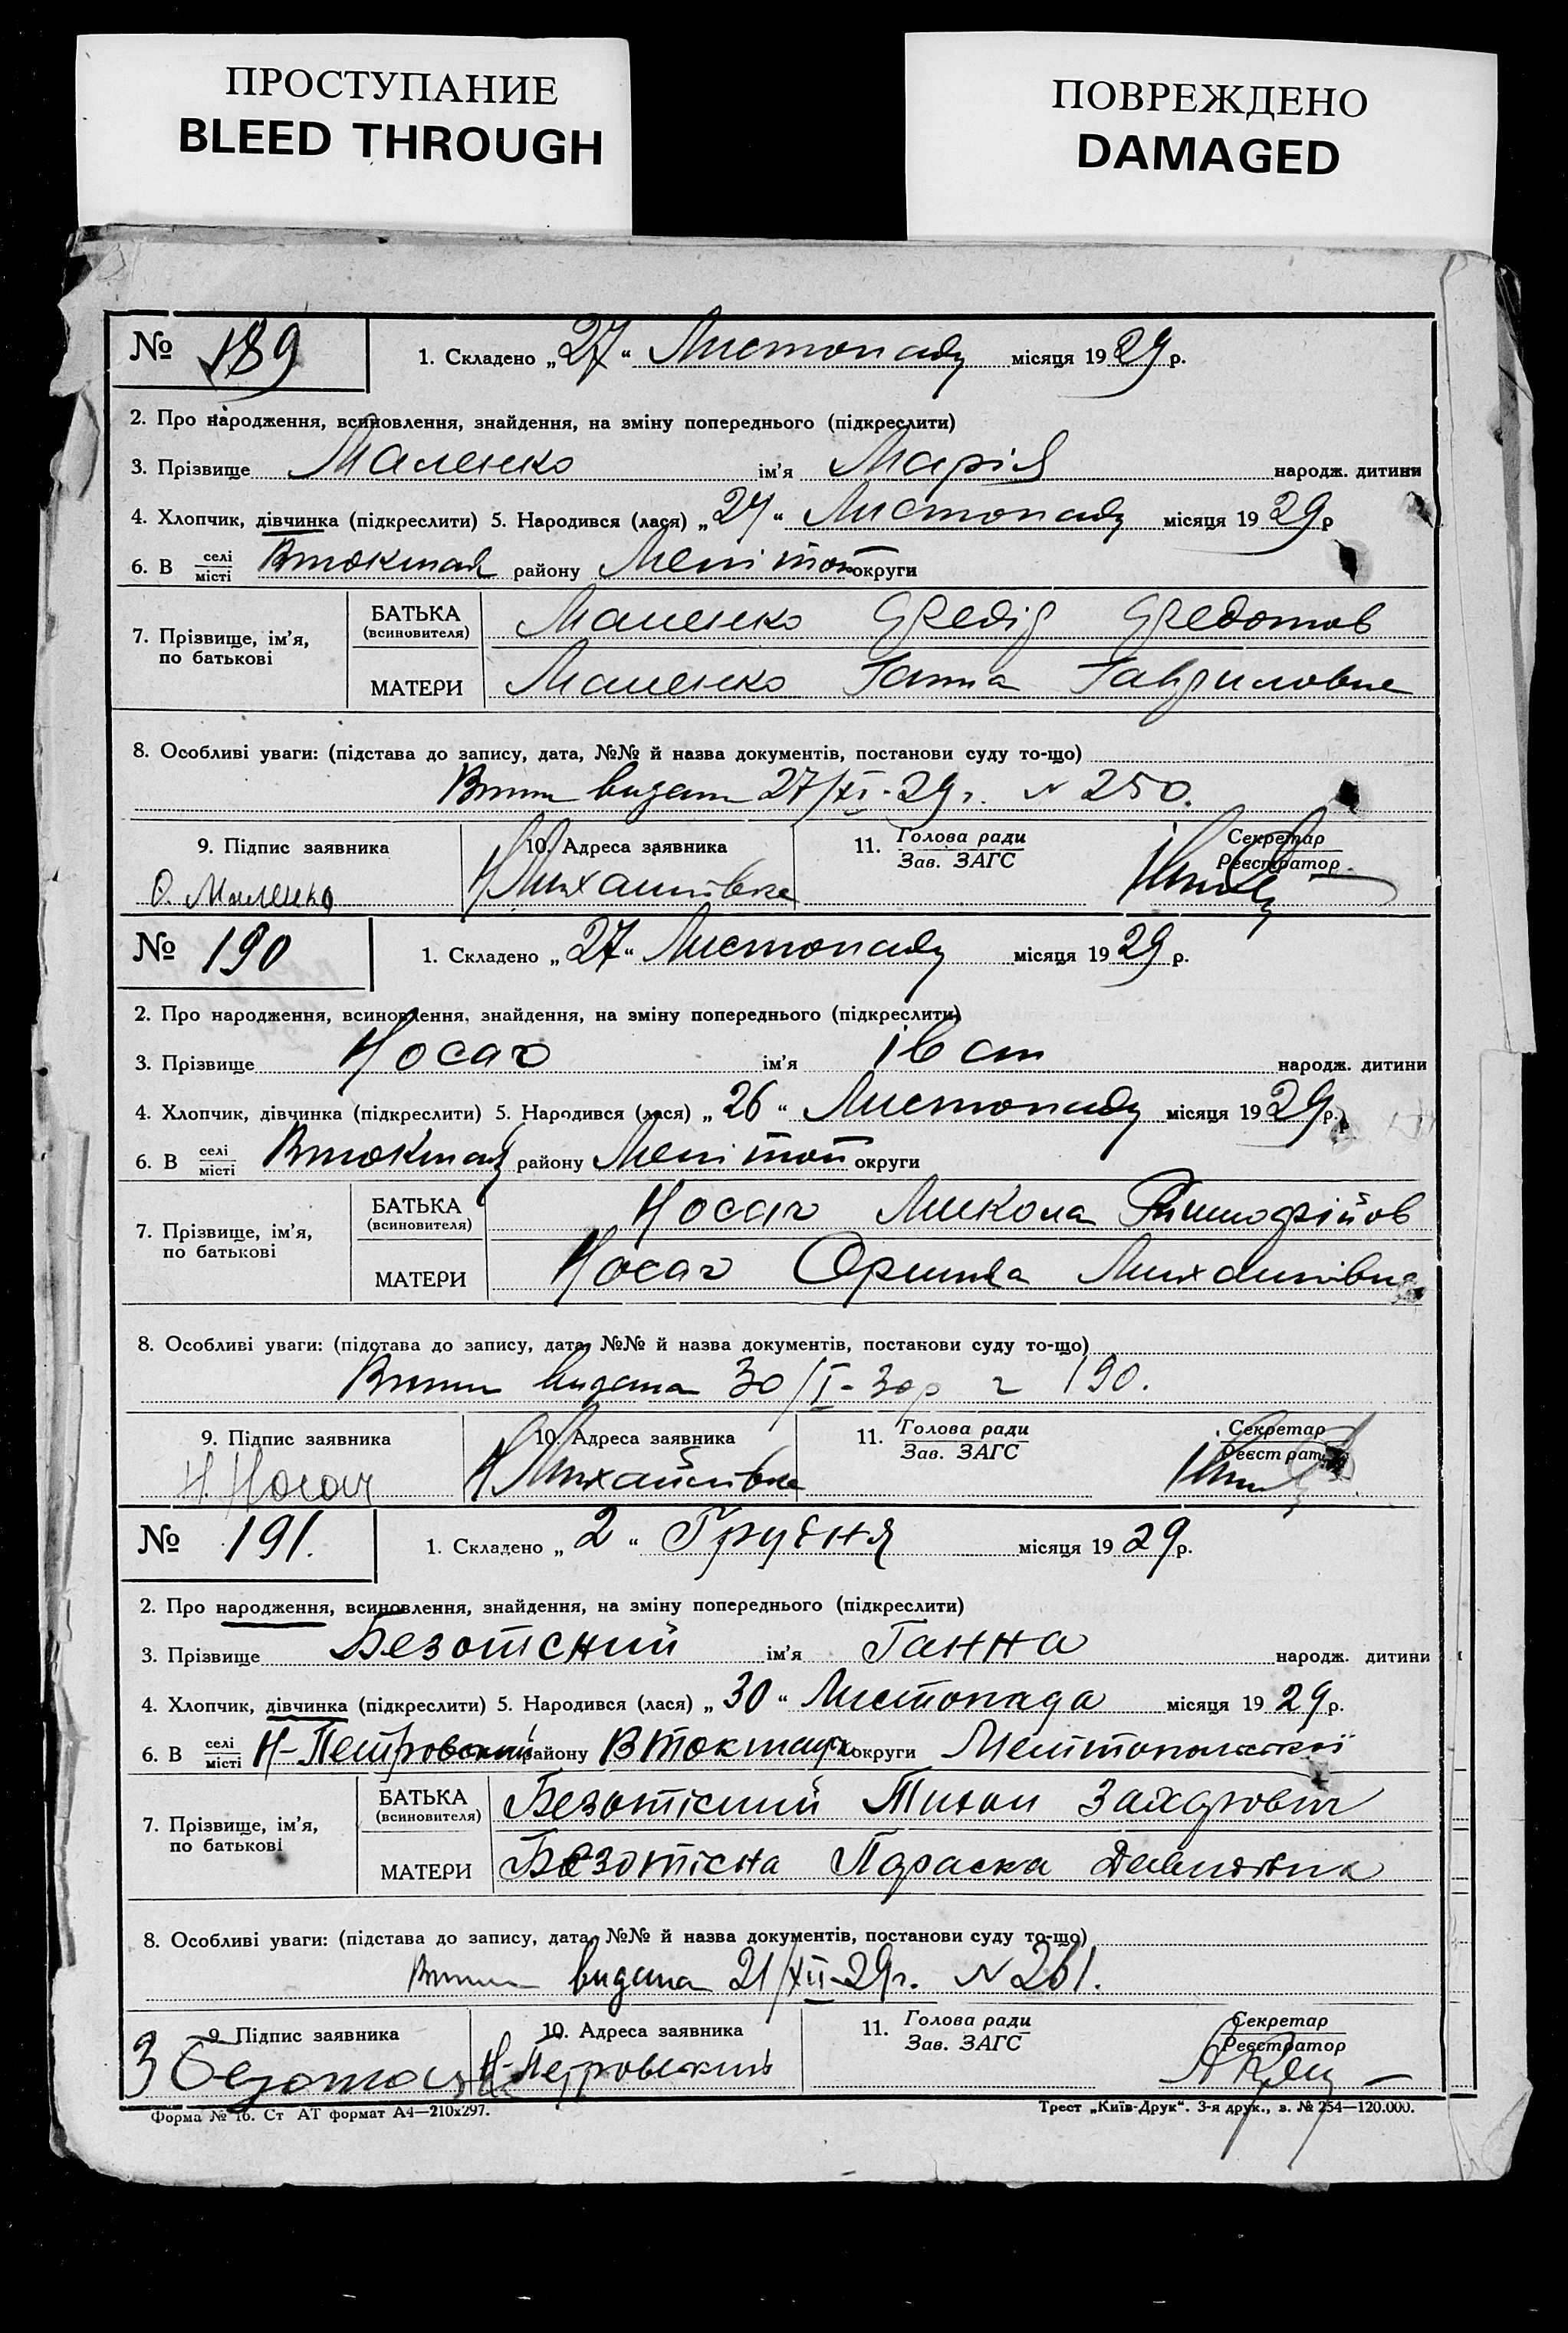 ПРОСТУПАНИЕ
BLEED THROUGH
ПОВРЕЖДЕНО
DAMAGED
№ 189
1. Складено „27“ Листопаду місяця 1929 р.
2. Про народження, всиновлення, знайдення, на зміну попереднього (підкреслити)
3. Прізвище Маленко ім'я Марія народж. дитини
4. Хлопчик, дівчинка (підкреслити) 5. Народився (лася) „24“ Листопаду місяця 1929 р
6. В селі/місті Втокмак району Меліtоп округи
7. Прізвище, ім'я, по батькові
БАТЬКА (всиновителя) Маленко Федір Федотов
МАТЕРИ Маленко Ганна Гавриловна
8. Особливі уваги: (підстава до запису, дата, №№ й назва документів, постанови суду то-що)
видан 27/XI-29 г. N 250.
9. Підпис заявника
10. Адреса заявника
11. Голова ради
Зав. ЗАГС
Секретар
Реєстратор
Ф. Маленко
Н Михайлівка
№ 190
1. Складено „27“ Листопаду місяця 1929 р.
2. Про народження, всиновлення, знайдення, на зміну попереднього (підкреслити)
3. Прізвище Носач ім'я Іван народж. дитини
4. Хлопчик, дівчинка (підкреслити) 5. Народився (лася) „26“ Листопаду місяця 1929 р.
6. В селі/місті Втокмак району Меліtоп округи
7. Прізвище, ім'я, по батькові
БАТЬКА (всиновителя) Носач Микола
МАТЕРИ Носач Оришка Михайлівна
8. Особливі уваги: (підстава до запису, дата, №№ й назва документів, постанови суду то-що)
видана 30/I-30 р 190.
9. Підпис заявника
10. Адреса заявника
11. Голова ради
Зав. ЗАГС
Секретар
Реєстратор
Н. Носач
Н Михайлівка
№ 191.
1. Складено „2“ Грудня місяця 1929 р.
2. Про народження, всиновлення, знайдення, на зміну попереднього (підкреслити)
3. Прізвище Безотсний ім'я Ганна народж. дитини
4. Хлопчик, дівчинка (підкреслити) 5. Народився (лася) „30“ Листопада місяця 1929 р.
6. В селі/місті Н-Петровский району Втокмацк округи Мелітопольської
7. Прізвище, ім'я, по батькові
БАТЬКА (всиновителя) Безотісний Тихон Захарович
МАТЕРИ Безотісна Параска
8. Особливі уваги: (підстава до запису, дата, №№ й назва документів, постанови суду то-що)
видана 21/XII-29 г. N 261.
9. Підпис заявника
10. Адреса заявника
11. Голова ради
Зав. ЗАГС
Секретар
Реєстратор
Н-Петровский
Форма № 16. Ст АТ формат А4—210х297.
Трест „Київ-Друк“. 3-я друк., з. № 254—120.000.